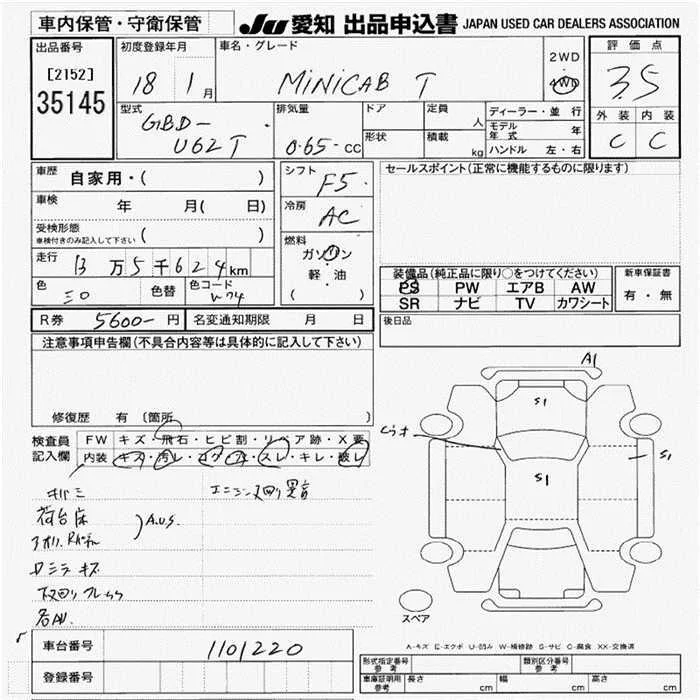 車内保管・守衛保管
JU 愛知 出品申込書 JAPAN USED CAR DEALERS ASSOCIATION
出品番号
[2152]
35145
初度登録年月
18 1月
車名・グレード
MiNiCAB T
2WD
4WD
評価点
3.5
外装 内装
C C
型式
GBD-
U62T
排気量
0.65 cc
ドア
形状
定員
人
積載
kg
ディーラー・並行
モデル年式 年
ハンドル 左・右
車歴
自家用・( )
車検
年 月( 日)
受検形態
車検付きのみ記入して下さい ( )
走行
13万5千624km
色
色替
色コード
W74
シフト
F5
冷房
AC
燃料
ガソリン
軽・油
( )
セールスポイント(正常に機能するものに限ります)
装備品(純正品に限り○をつけてください)
PS PW エアB AW
SR ナビ TV カワシート
新車保証書
有・無
R券 5600- 円
名変通知期限 月 日
後日品
注意事項申告欄(不具合内容等は具体的に記入して下さい)
修復歴 有 〔箇所 〕
検査員
記入欄
FW キズ・飛石・ヒビ割・リペア跡・X要
内装 キズ・汚レ・コゲ・穴・スレ・キレ・破レ
エンジン又回り異音
荷台床
アオリ、Rパネル
A.U.S.
キズ
A1
S1
S1
S1
スペア
A-キズ E-エクボ U-凹み W-補修跡 S-サビ C-腐食 XX-交換済
車台番号 1101220
登録番号
形式指定番号
参考
類別区分番号
参考
車庫証明用
参考
長さ cm 幅 cm 高さ cm